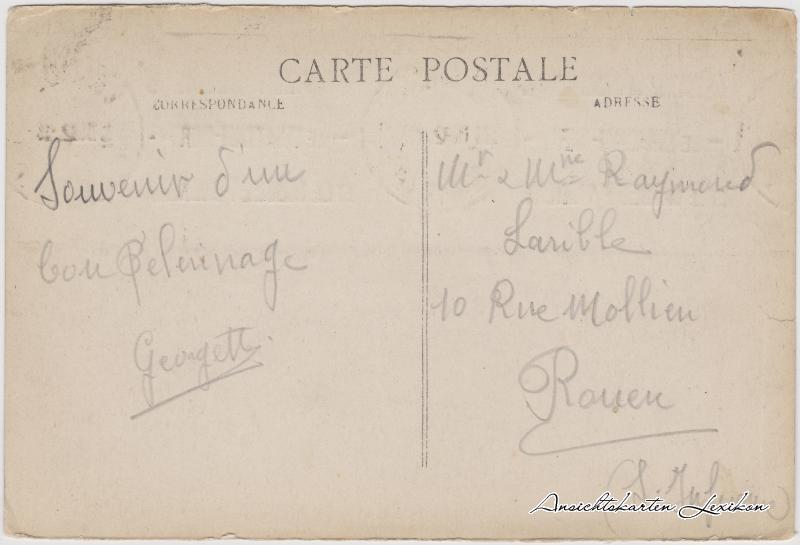 CARTE POSTALE
CORRESPONDANCE
ADRESSE
Souvenir d'un
bon Pelerinage
Georgette
Mr & Mme Raymond
Larible
10 Rue Mollien
Rouen
(S. Infre
Ansichtskarten Lexikon